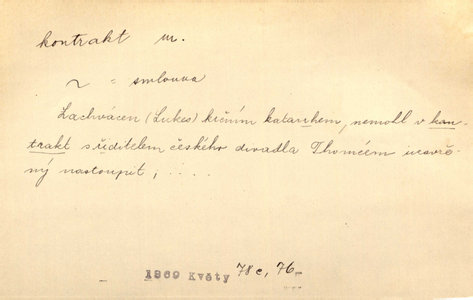 kontrakt m.
~ = smlouva
Zachvácen (Lukes) krčním katarrhem, nemohl v kon-
trakt s ředitelem českého divadla Thoméem uzavře-
ný nastoupit; . . . .
1869 Květy 78c, 76.